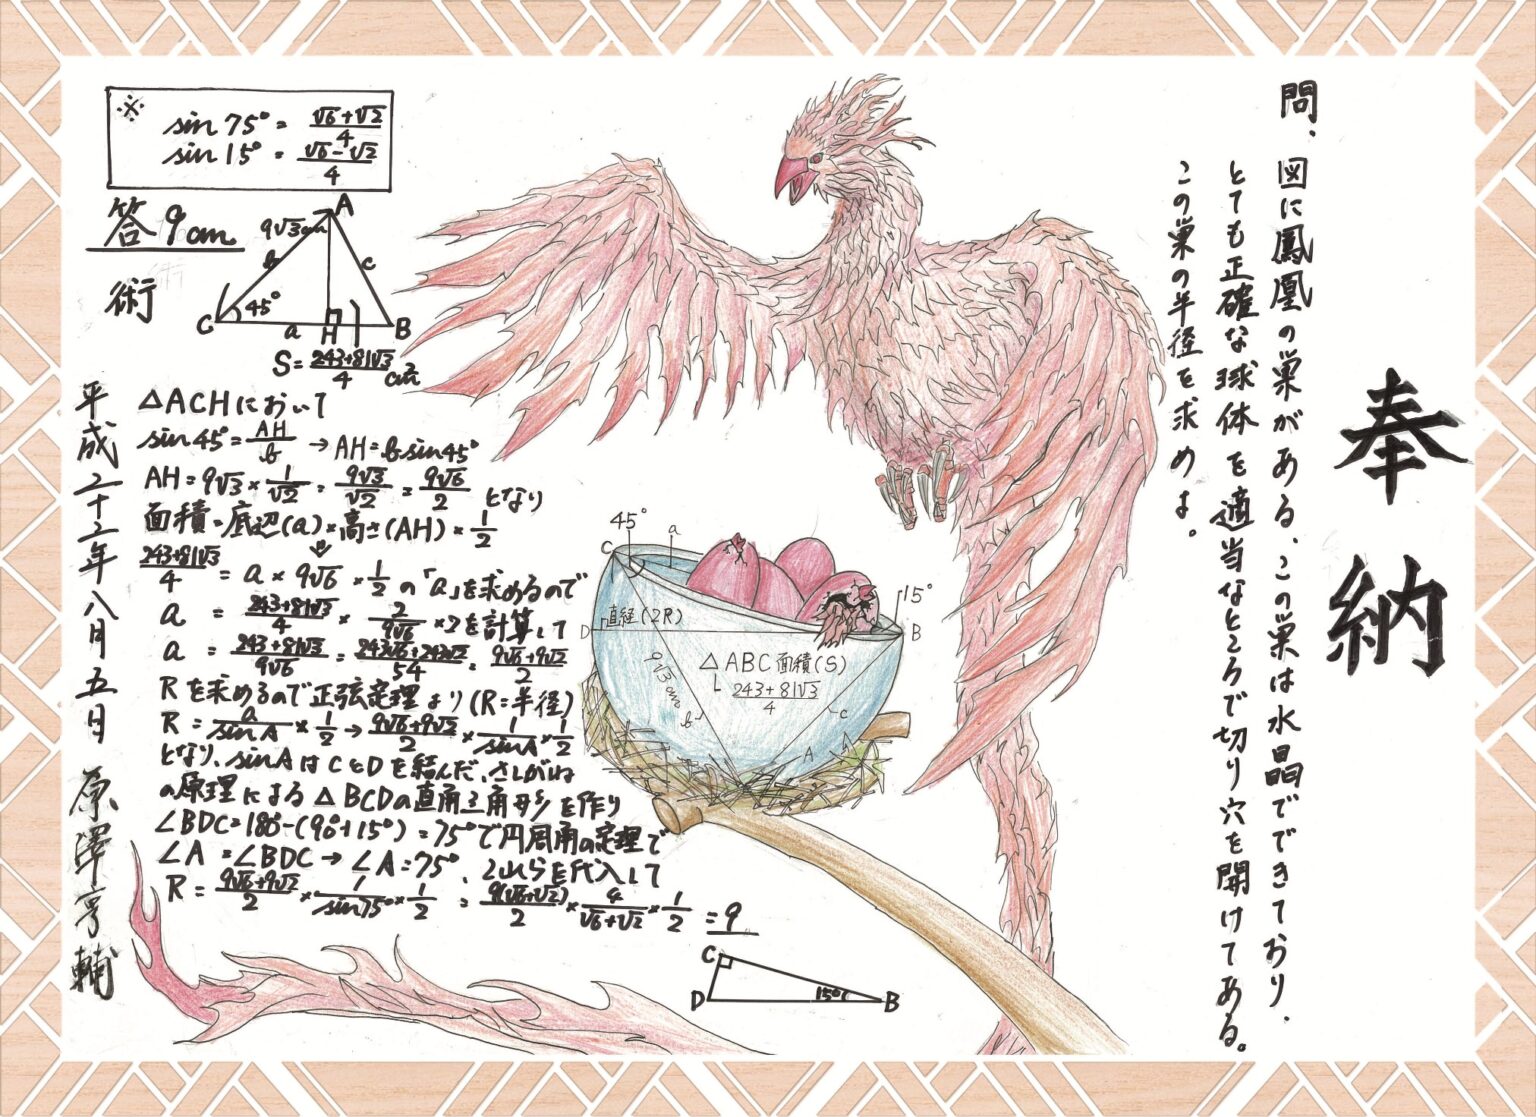 奉納
問、図に鳳凰の巣がある、この巣は水晶でできており、
とても正確な球体を適当なところで切り穴を開けてある。
この巣の半径を求めよ。
※
sin75°=(√6+√2)/4
sin15°=(√6-√2)/4
答9cm
術
A
9√3cm
b
c
C
45°
a
H
B
S=(243+81√3)/4 cm²
△ACHにおいて
sin45°=AH/b→AH=b sin45°
AH=9√3×1/√2=9√3/√2=9√6/2となり
面積=底辺(a)×高さ(AH)×1/2
(243+81√3)/4=a×9√6×1/2の「a」を求めるので
a=(243+81√3)/4×2/9√6×2を計算して
a=(243+81√3)/9√6=(243√6+243√2)/54=(9√6+9√2)/2
Rを求めるので正弦定理より(R=半径)
R=a/sinA×1/2→(9√6+9√2)/2×1/sinA×1/2
となり、sinAはCとDを結んだ、さしがね
の原理による△BCDの直角三角形を作り
∠BDC=180°-(90°+15°)=75°で円周角の定理で
∠A=∠BDC→∠A=75°、これらを代入して
R=(9√6+9√2)/2×1/sin75°×1/2=9(√6+√2)/2×4/(√6+√2)×1/2=9
C
D
15°
B
45°
a
C
15°
直経(2R)
D
B
△ABC面積(S)
(243+81√3)/4
9√3cm
b
c
A
A
平成二十三年八月五日 原澤亨輔